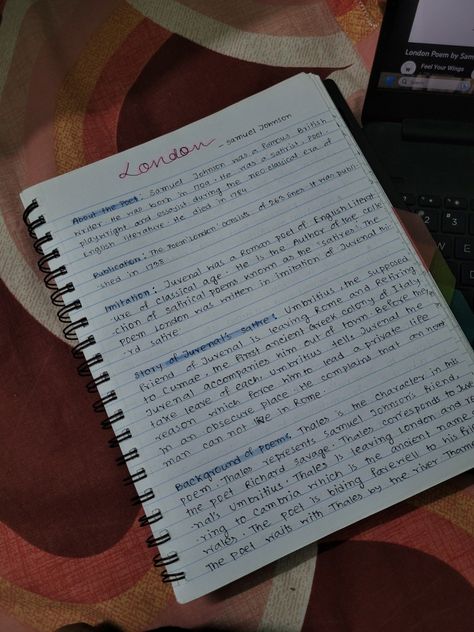 London Poem by Sam
Feel Your Wings
London
- Samuel Johnson
About the Poet: Samuel Johnson was a famous British
writer. He was born in 1709. He was a satirist, poet,
playwright and essayist during the neo classical era of
English literature. He died in 1784
Publication: The poem 'London' consists of 263 lines. It was publi
shed in 1738.
Imitation: Juvenal was a Roman poet of English literat
ure of classical age. He is the Author of the colle
ction of satirical poems known as the "satires". The
poem London was written in imitation of Juvenal thi
rd satire.
Story of Juvenal's satire: Umbritius, the supposed
friend of Juvenal is leaving Rome and retiring
to Cumae, the first ancient Greek colony of Italy.
Juvenal accompanies him out of town. Before they
take leave of each, Umbritius tells Juvenal the
reason which force him to lead a private life
in an obscure place. He complains that an hon
man can not live in Rome.
Background of Poems: Thales is the character in this
poem. Thales represents Samuel Johnson's friend,
the poet Richard Savage. Thales corresponds to Juve
nal's Umbritius. Thales is leaving London and re
ring to Cambria which is the ancient name
wales. The poet is biding farewell to his frie
The poet waits with Thales by the river Tham